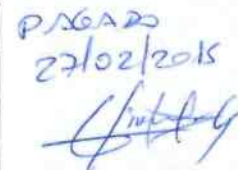 PAGADO
27/02/2015